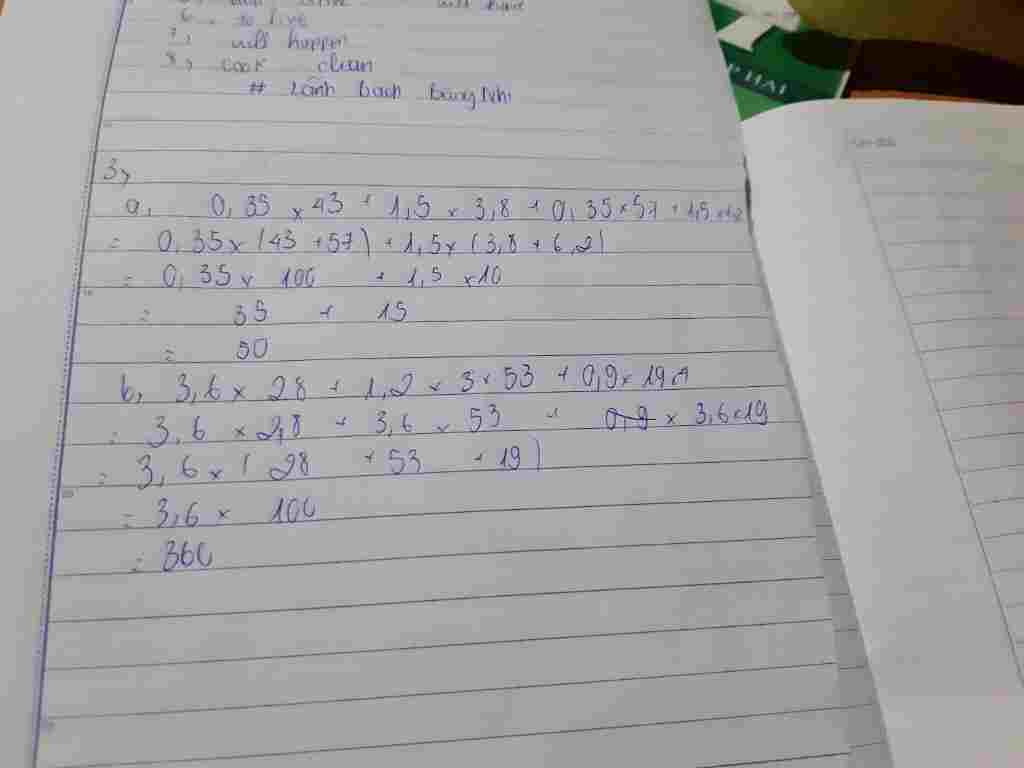 6, to live
7, will happen
8, cook clean
# Lãnh Bạch Băng Nhi
3,
a, 0,35 x 43 + 1,5 x 3,8 + 0,35 x 57 + 1,5 x
= 0,35 x (43 + 57) + 1,5 x (3,8 + 6,2)
= 0,35 x 100 + 1,5 x 10
= 35 + 15
= 50
b, 3,6 x 28 + 1,2 x 3 x 53 + 0,9 x 19
= 3,6 x 2,8 + 3,6 x 53 + 0,9 x 3,6 x 19
= 3,6 x ( 28 + 53 + 19)
= 3,6 x 100
= 360